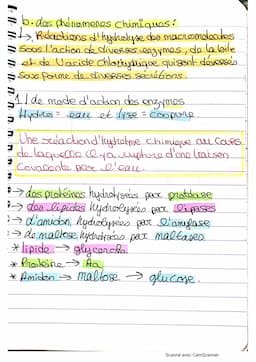 b. des phénomènes chimiques :
↳ Réactions d'hydrolyse des macromolécules
sous l'action de diverses enzymes, de la bile
et de l'acide chlorhydrique qui sont déversés
sous forme de diverses sécrétions.
1/ de mode d'action des enzymes
Hydro = eau et lyse = coupure
Une réaction d'hydrolyse chimique au cours
de laquelle il ya rupture d'une liaison
covalente par l'eau.
→ des protéines hydrolysées par protéase
→ des lipides hydrolysées par lipases
→ d'amidon hydrolysées par l'amylase
→ de maltose hydrolysées par maltases
* lipide → glycérol
* Protéine → Aa
* Amidon → maltose → glucose.
Scanné avec CamScanner